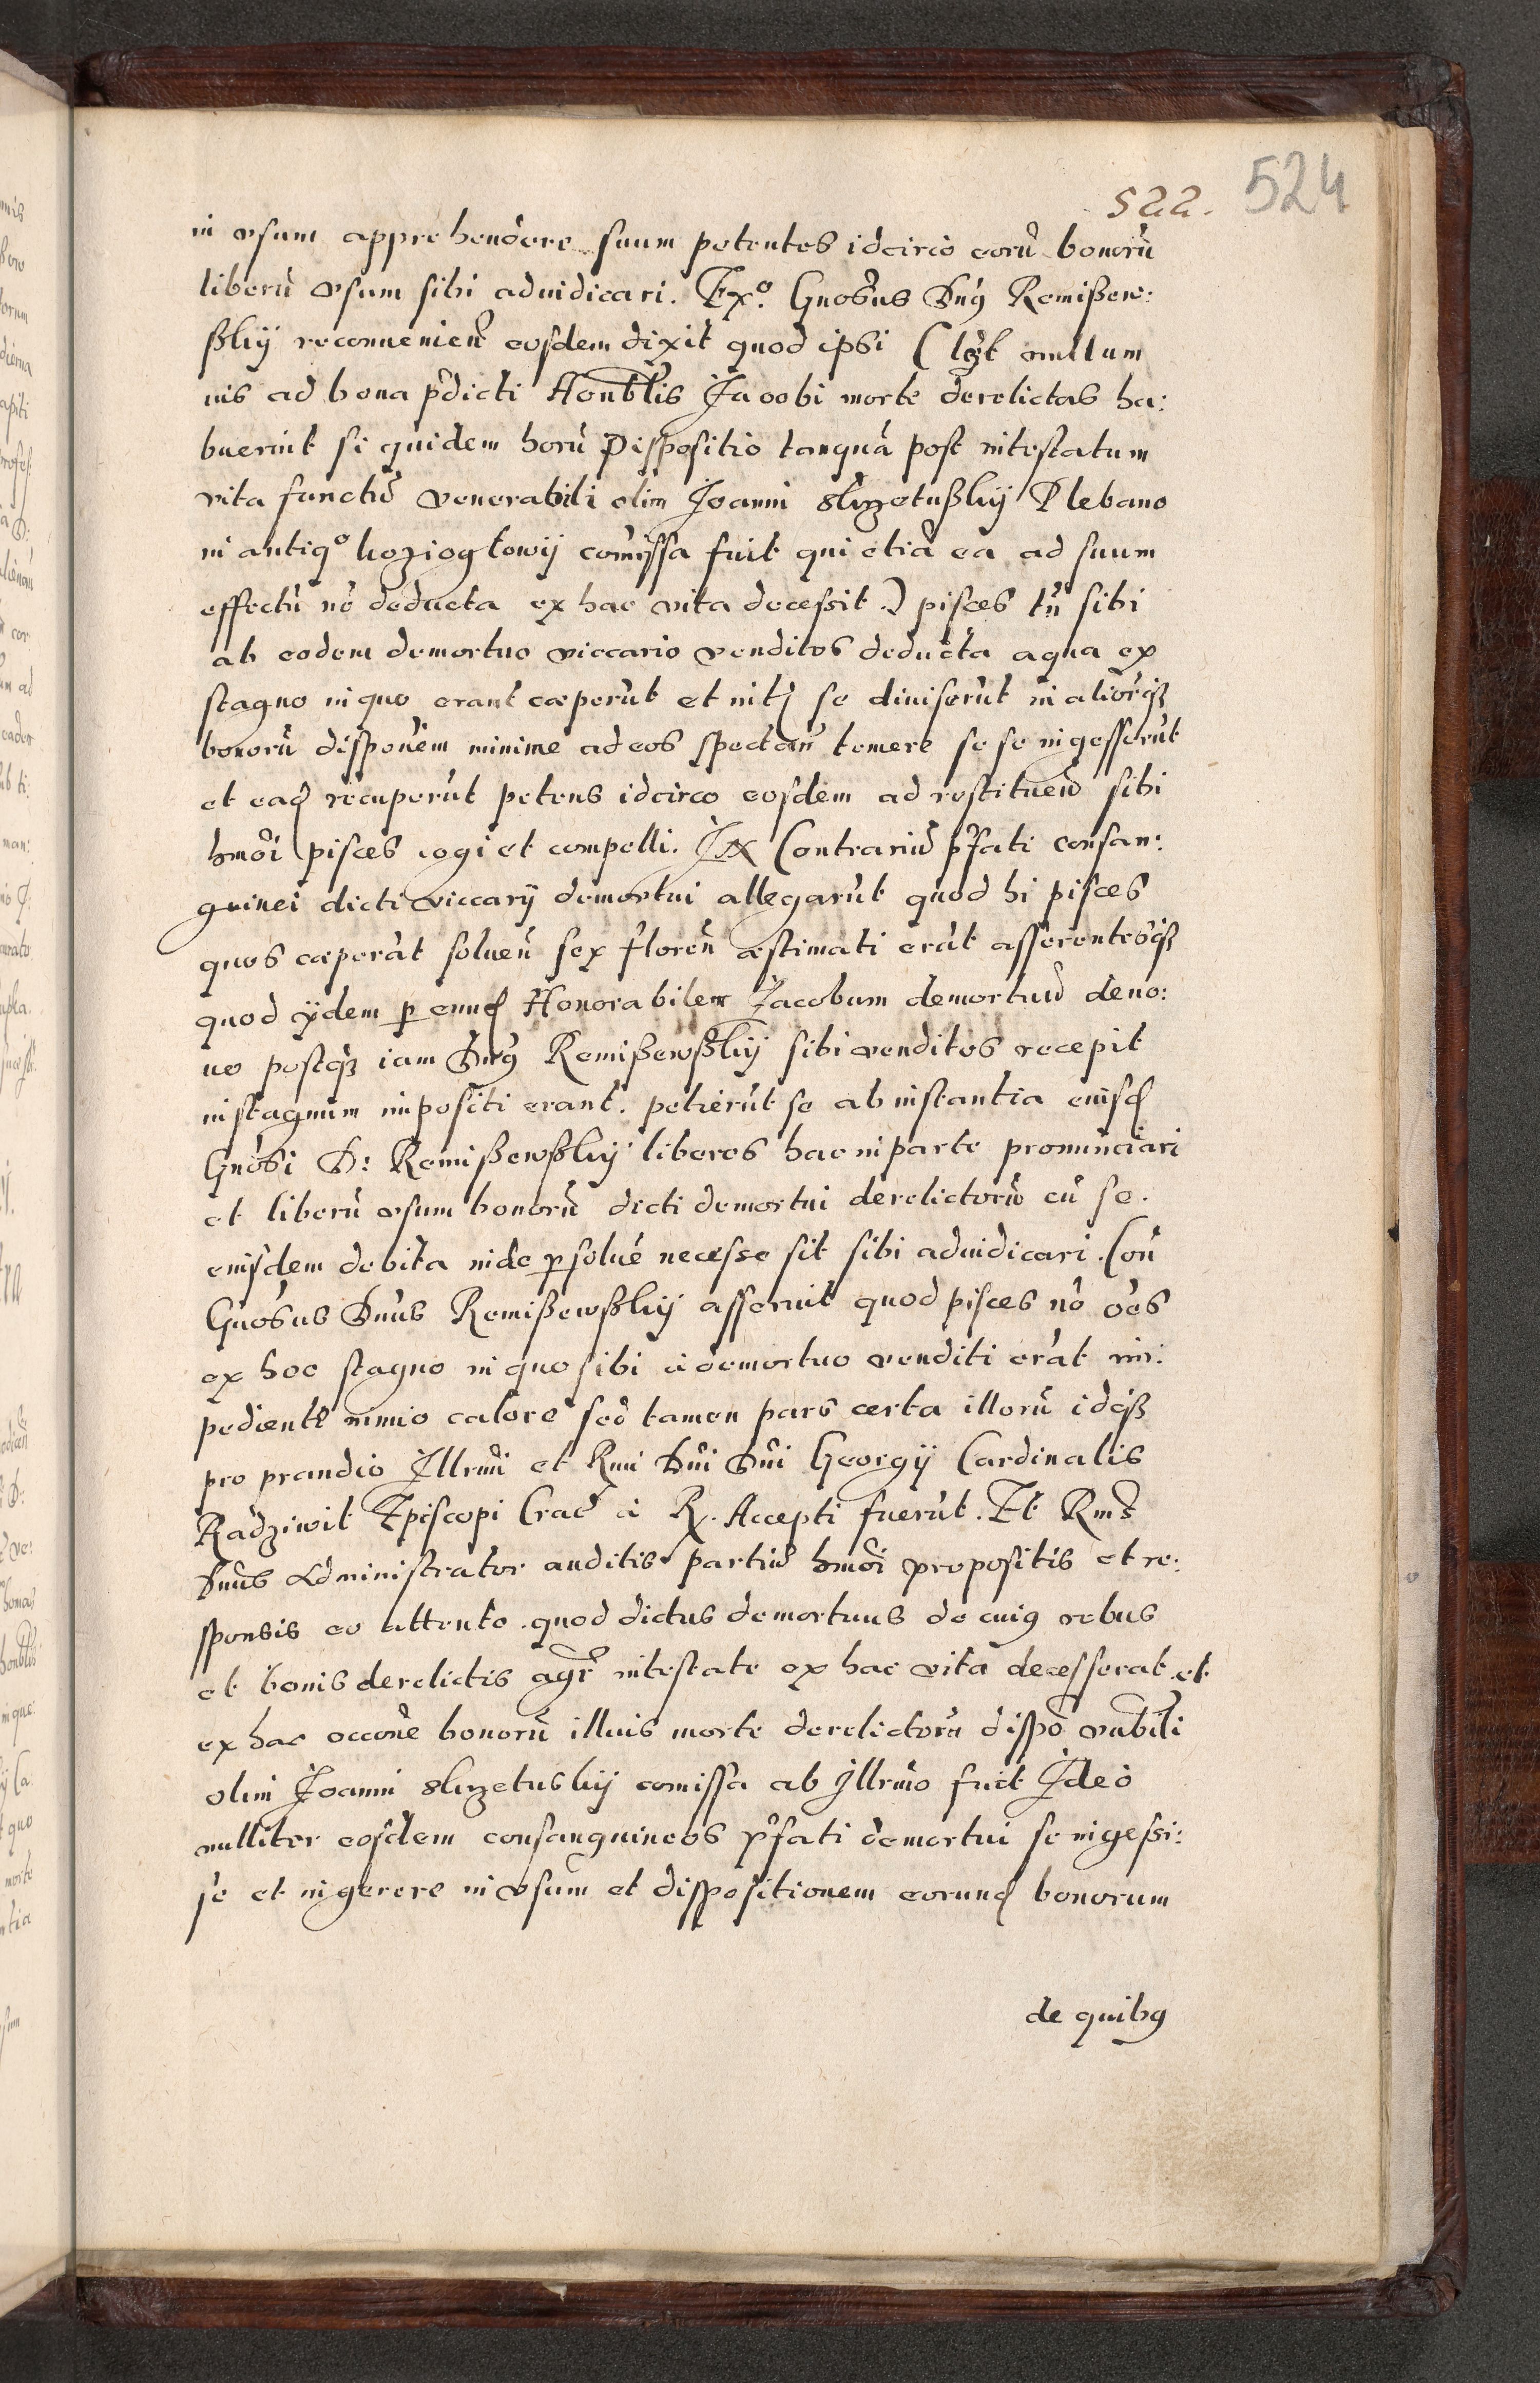 522. 524
in vsum apprehendere suum petentes idcirco eorũ bonorũ
liberũ vsum sibi adiudicari. Ex.º Gnõsus Dnũs Remißew:
ßkij reconvenieñ eosdem dixit quod ipsi (lꝫt nullum
ius ad bona p̃dicti Honblis Jacobi morte derelictas ha:
buerint si quidem horũ Dispositio tanquã post intestatum
vita functũ venerabili olim Joanni Skrzetußkij Plebano
in antiqº koziogłowij comißa fuit qui etiã ea ad suum
effectũ nõ deducta ex hac vita decessit.) pisces tñ sibi
ab eodem demortuo viccario venditos deducta aqua ex
stagno in quo erant cæperũt et int. se diuiserũt in aliorqꝫ
bonorũ disponẽm minime ad eos spectañ temere se se ingesserũt
et eaq̃ récuperũt petens idcirco eosdem ad restitueñ sibi
hmõi pisces cogi et compelli. In Contrariũ p̃fati consan:
guinei dicti viccarij demortui allegarũt quod hi pisces
quos cæperãt solueñ sex floreñ æstimati erãt asserentesqꝫ
quod ijdem ꝑ eunď Honorabilem Jacobum demortuũ deno:
uo postqꝫ iam Dnũs Remißewßkij sibi venditos recepit
in stagnum impositi erant. petierũt se ab instantia eiusď
Gnõsi D: Remißewßkij liberos hac in parte pronunciari
et liberũ vsum bonorũ dicti demortui derelictorũ cũ se.
eiusdem debita inde ꝑsoluẽ necesse sit sibi adiudicari. Coñ
Gnõsus Dnũs Remißewßkij asseruit quod pisces nõ oẽs
ex hoc stagno in quo sibi à demortuo venditi erãt im:
pedientẽ nimio calore sed tamen pars certa illorũ idqꝫ
pro prandio Illrmi et Rmi Dñi Dñi Georgij Cardinalis
Radziwił Episcopi Crac̃ à R. Accepti fuerũt. Et Rms
Dnũs Administrator auditis partiũ hmõi propositis et re:
sponsis eo attento quod dictus demortuus de cuiꝯ rebus
et bonis derelictis agr̃ intestate ex hac vita decesserat et
ex hac occoñe bonorũ illuis morte derelictorũ dispõ vnbili
olim Joanni Skrzetuskij comissa ab Illrmo fuit Ideò
nulliter eosdem consanguineos p̃fati demortui se ingeßi:
se et ingerere in vsum et dispositionem eorunď bonorum
de quibꝯ